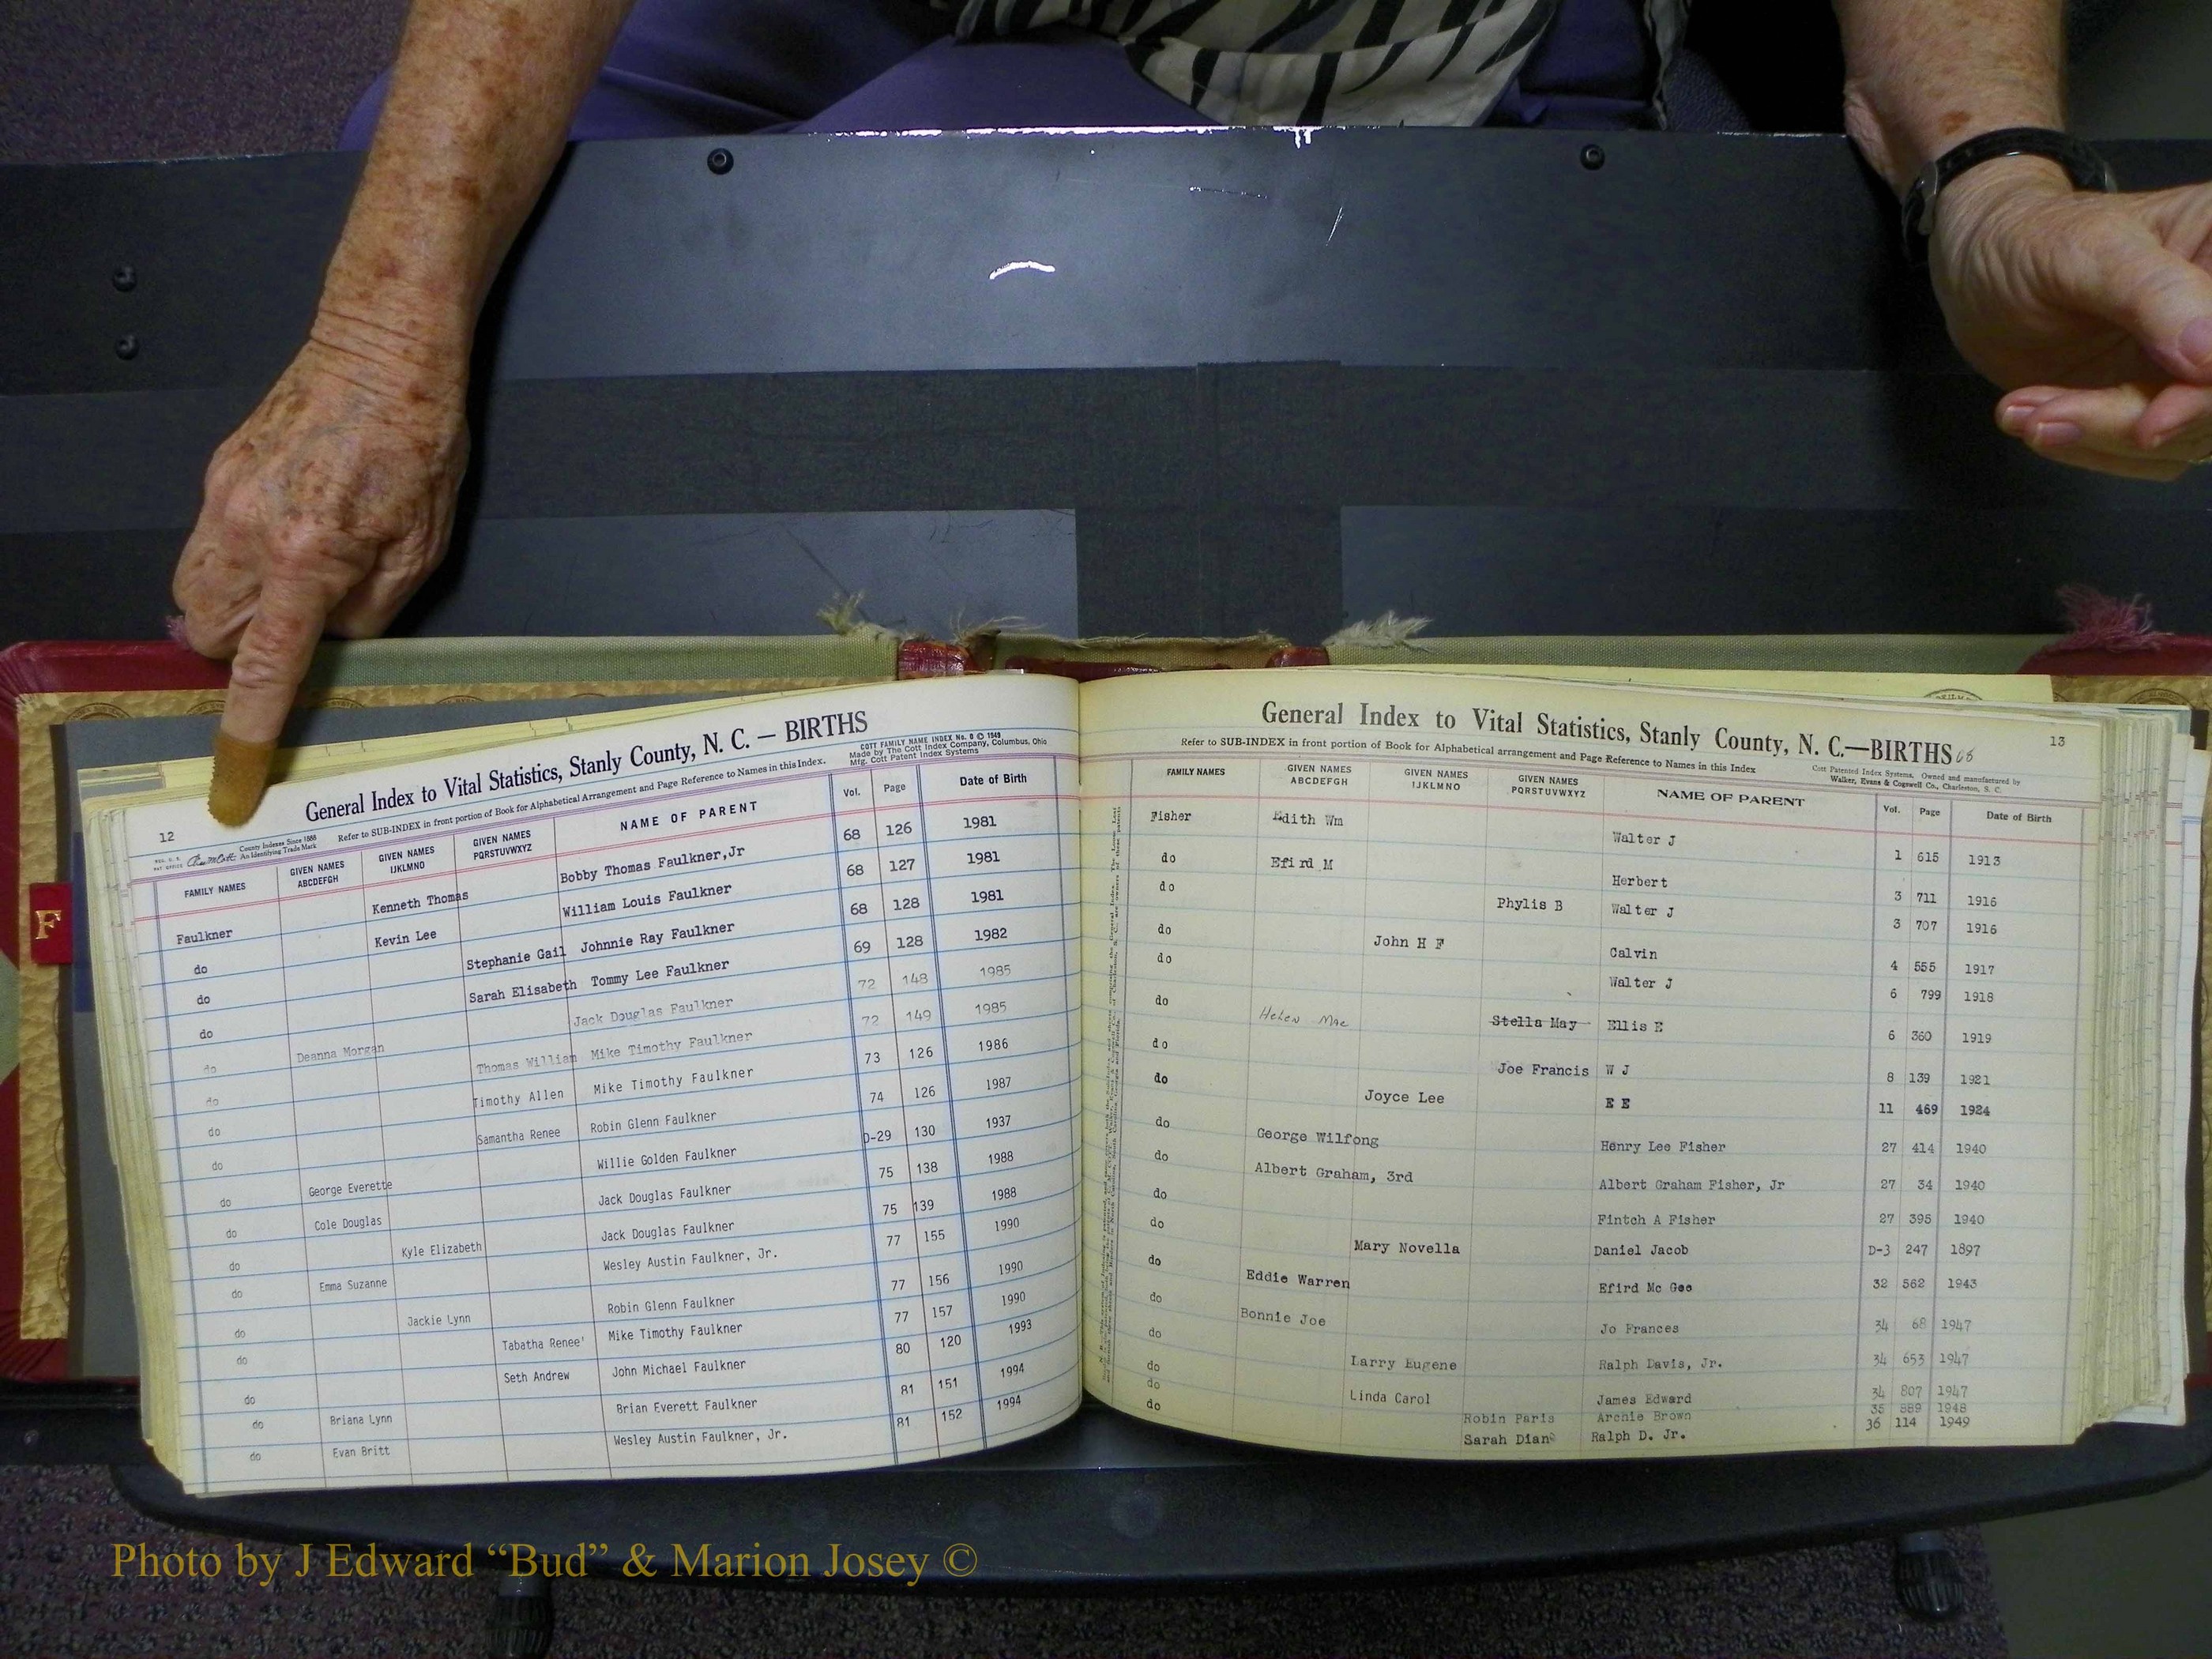 General Index to Vital Statistics, Stanly County, N. C. — BIRTHS
COTT FAMILY NAME INDEX No. 0 © 1949
Made by The Cott Index Company, Columbus, Ohio
Mfg. Cott Patent Index Systems
12
County Indexes Since 1888
An Identifying Trade Mark
Refer to SUB-INDEX in front portion of Book for Alphabetical Arrangement and Page Reference to Names in this Index.
FAMILY NAMES GIVEN NAMES ABCDEFGH GIVEN NAMES IJKLMNO GIVEN NAMES PQRSTUVWXYZ NAME OF PARENT Vol. Page Date of Birth
Faulkner Kenneth Thomas Bobby Thomas Faulkner,Jr 68 126 1981
do Kevin Lee William Louis Faulkner 68 127 1981
do Stephanie Gail Johnnie Ray Faulkner 68 128 1981
do Sarah Elisabeth Tommy Lee Faulkner 69 128 1982
do Deanna Morgan Jack Douglas Faulkner 72 148 1985
do Thomas William Mike Timothy Faulkner 72 149 1985
do Timothy Allen Mike Timothy Faulkner 73 126 1986
do Samantha Renee Robin Glenn Faulkner 74 126 1987
do George Everette Willie Golden Faulkner D-29 130 1937
do Cole Douglas Jack Douglas Faulkner 75 138 1988
do Kyle Elizabeth Jack Douglas Faulkner 75 139 1988
do Emma Suzanne Wesley Austin Faulkner, Jr. 77 155 1990
do Jackie Lynn Robin Glenn Faulkner 77 156 1990
do Tabatha Renee' Mike Timothy Faulkner 77 157 1990
do Seth Andrew John Michael Faulkner 80 120 1993
do Briana Lynn Brian Everett Faulkner 81 151 1994
do Evan Britt Wesley Austin Faulkner, Jr. 81 152 1994
F
General Index to Vital Statistics, Stanly County, N. C.—BIRTHS 68
13
Refer to SUB-INDEX in front portion of Book for Alphabetical arrangement and Page Reference to Names in this Index
Cott Patented Index Systems, Owned and manufactured by
Walker, Evans & Cogswell Co., Charleston, S. C.
FAMILY NAMES GIVEN NAMES ABCDEFGH GIVEN NAMES IJKLMNO GIVEN NAMES PQRSTUVWXYZ NAME OF PARENT Vol. Page Date of Birth
Fisher Edith Wm Walter J 1 615 1913
do Efird M Herbert 3 711 1916
do Phylis B Walter J 3 707 1916
do John H F Calvin 4 555 1917
do Walter J 6 799 1918
do Helen Mae Stella May Ellis E 6 360 1919
do Joe Francis W J 8 139 1921
do Joyce Lee E E 11 469 1924
do George Wilfong Henry Lee Fisher 27 414 1940
do Albert Graham, 3rd Albert Graham Fisher, Jr 27 34 1940
do Fintch A Fisher 27 395 1940
do Mary Novella Daniel Jacob D-3 247 1897
do Eddie Warren Efird Mc Gee 32 562 1943
do Bonnie Joe Jo Frances 34 68 1947
do Larry Eugene Ralph Davis, Jr. 34 653 1947
do Linda Carol James Edward 34 807 1947
do Robin Paris Archie Brown 35 889 1948
do Sarah Diane Ralph D. Jr. 36 114 1949
Photo by J Edward “Bud” & Marion Josey ©